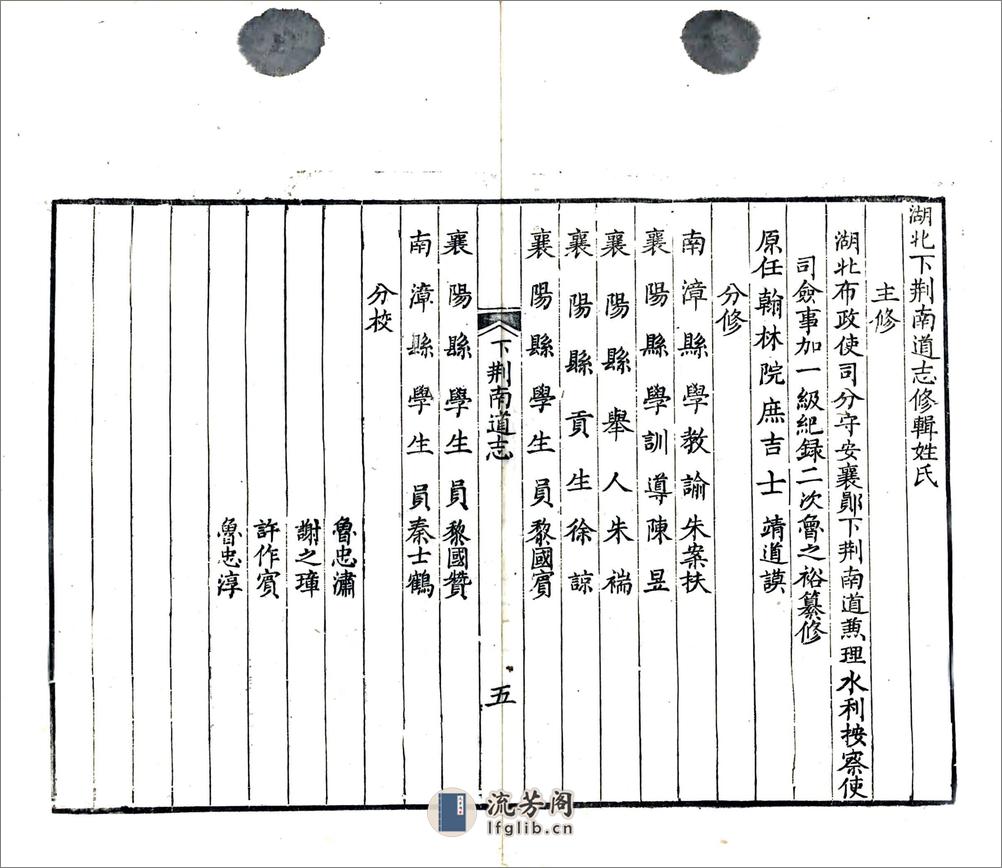 湖北下荆南道志修輯姓氏
主修
湖北布政使司分守安襄鄖下荆南道兼理水利按察使
司僉事加一級紀録二次魯之裕纂修
原任翰林院庶吉士靖道謨
分修
南漳縣學教諭朱案扶
襄陽縣學訓導陳昱
襄陽縣舉人朱褍
襄陽縣貢生徐諒
襄陽縣學生員黎國賓
下荆南道志
五
襄陽縣學生員黎國贊
南漳縣學生員秦士鶴
分校
魯忠潚
謝之璋
許作賓
魯忠淳
流芳阁
lfglib.cn